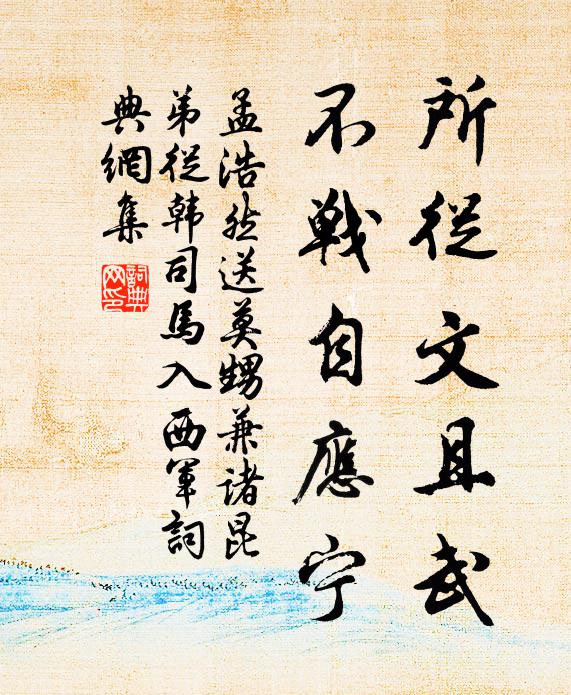 所從文且武
不戰自應宁
孟浩然送莫甥兼諸昆
弟從韩司馬入西軍詞
典網集
詞典
网印